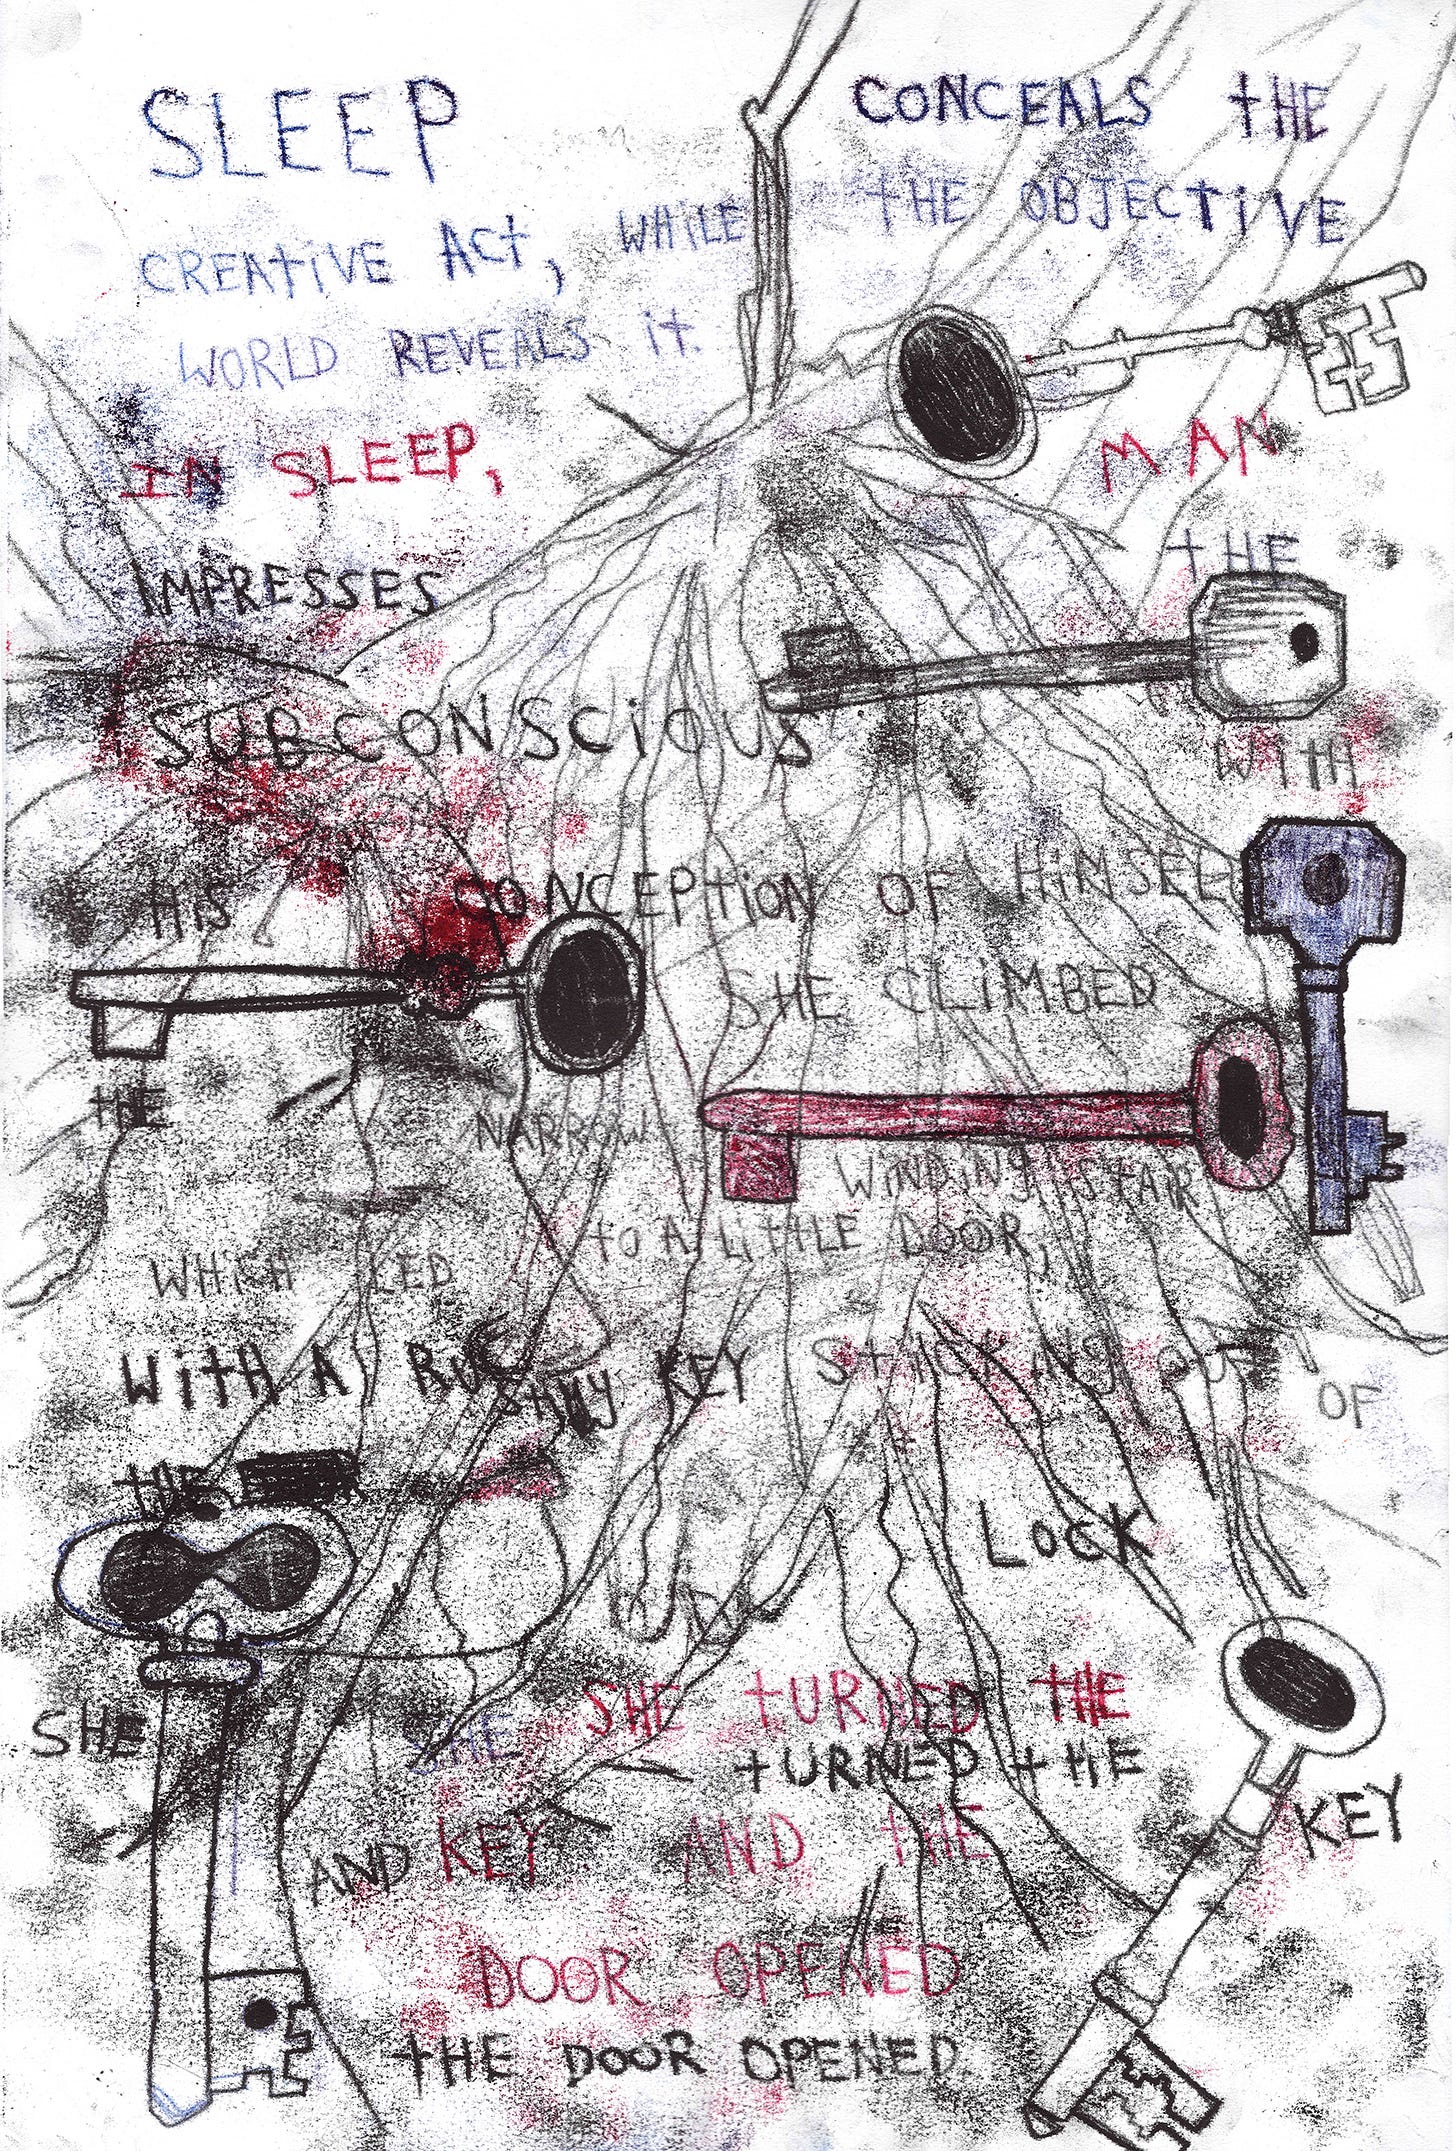 SLEEP CONCEALS THE
CREATIVE ACT, WHILE THE OBJECTIVE
WORLD REVEALS IT.
IN SLEEP, MAN
IMPRESSES THE
SUBCONSCIOUS WITH
HIS CONCEPTION OF HIMSELF
SHE CLIMBED
THE NARROW WINDING STAIR
WHICH LED TO A LITTLE DOOR,
WITH A RUSTY KEY STICKING OUT OF
THE LOCK
SHE SHE SHE TURNED THE
TURNED THE KEY
AND KEY AND THE
DOOR OPENED
THE DOOR OPENED.